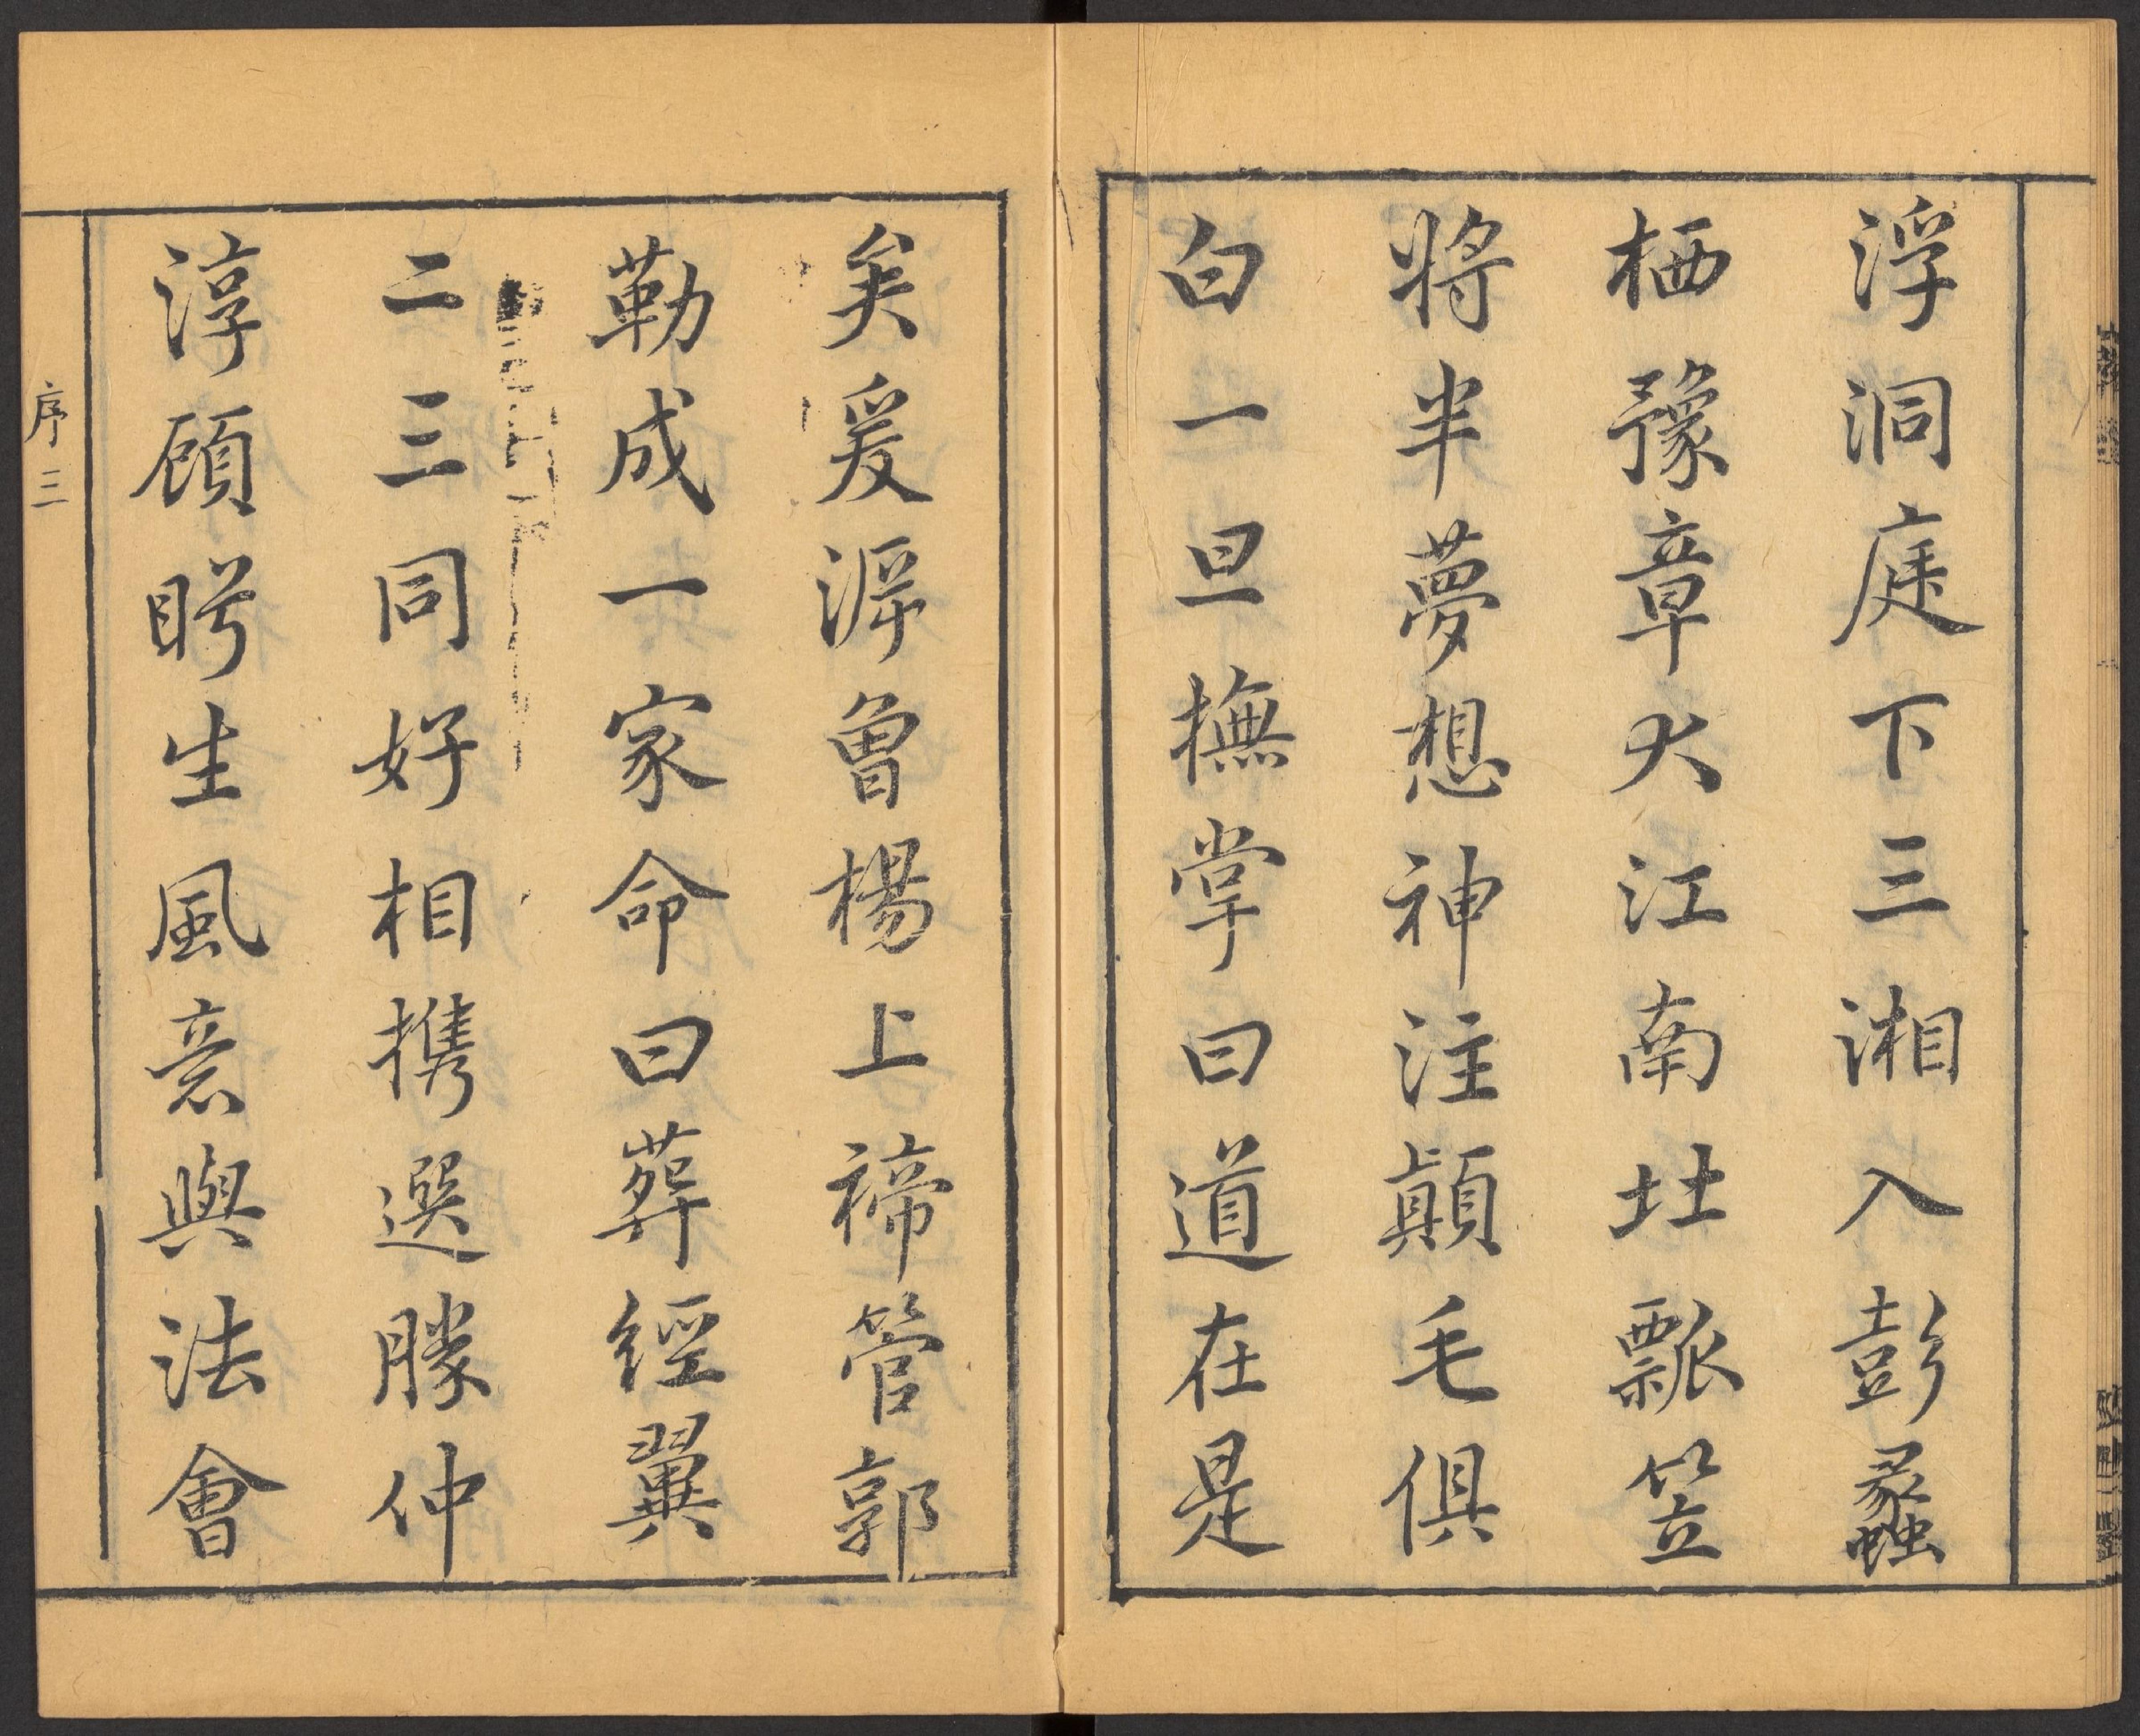 浮洞庭下三湘入彭蠡
栖豫章大江南北瓢笠
將半夢想神注顛毛俱
白一旦撫掌曰道在是
矣爰泝曾楊上褅管郭
勒成一家命曰葬經翼
二三同好相携選勝仲
淳顧盻生風意與法會
序三